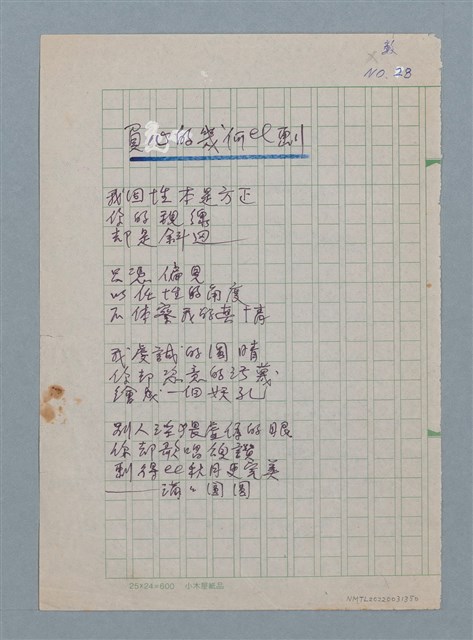 敦
NO. 28
負心的幾何比劃
我固性本是方正
你的視線
却是斜迴
只憑偏見
以任性的角度
不体察我的真情
我虔誠的圓睛
你却恣意的污衊
繪成一個妖孔
別人猥虛偽的眼
你却歌唱頌讚
剩得比秋月更完美
——滿心圓圓
25×24=600 小本型紙品
NMTL00220031350